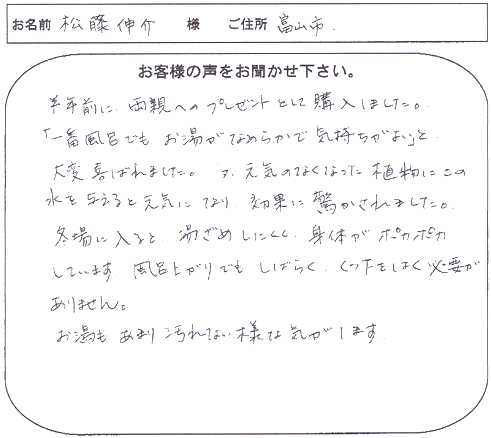 お名前 松藤伸介 様 ご住所 富山市.
お客様の声をお聞かせ下さい。
半年前に、両親へのプレゼントとして購入しました。
「一番風呂でも お湯がなめらかで気持ちがよい」と
大変喜ばれました。又、元気のなくなった植物にこの
水を与えると元気になり 効果に驚かされました。
冬場に入ると、湯ざめしにくく、身体がポカポカ
しています 風呂上がりでも しばらく、くつ下をはく必要が
ありません。
お湯も あまり汚れない様な気がします